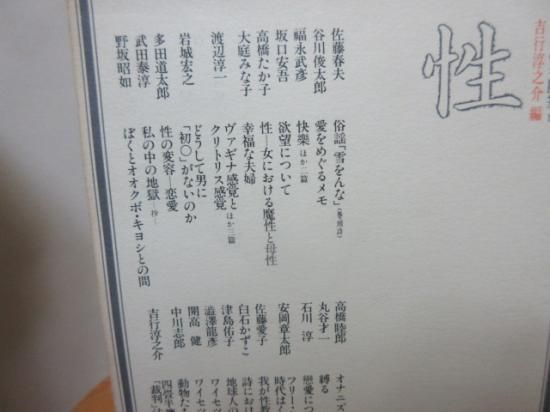 吉行淳之介 編
性
佐藤春夫 俗謡「雪をんな」(巻頭詩)
谷川俊太郎 愛をめぐるメモ
福永武彦 快樂 ほか二篇
坂口安吾 欲望について
高橋たか子 性―女における魔性と母性
大庭みな子 幸福な夫婦
渡辺淳一 ヴァギナ感覚と
クリトリス感覚 ほか三篇
岩城宏之 どうして男に
「初〇」がないのか
多田道太郎 性の変容―恋愛
武田泰淳 私の中の地獄―抄―
野坂昭如 ぼくとオオクボ・キヨシとの間
高橋睦郎 オナニズ
丸谷才一 縛る
石川淳 戀愛につ
安岡章太郎 フリー・
時代はく
佐藤愛子 我が性教
白石かずこ 詩におけ
津島佑子 地球人の
澁澤龍彦 ワイセツ
開高健 ワイセツ
中川志郎 動物たち
吉行淳之介 四畳半
「裁判」